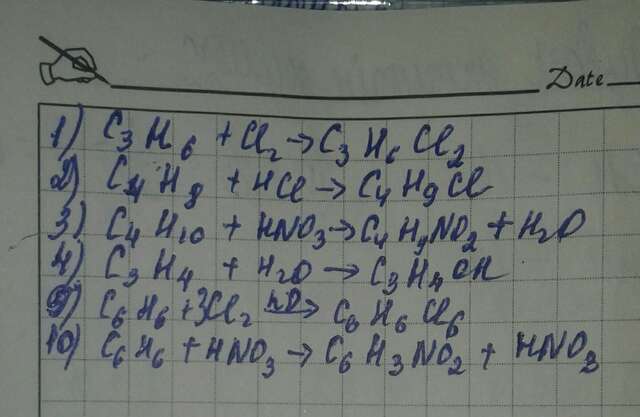 Date
1) C3H6 + Cl2 → C3H6Cl2
2) C4H8 + HCl → C4H9Cl
3) C4H10 + HNO3 → C4H9NO2 + H2O
4) C3H4 + H2O → C3H4OH
9) C6H6 + 3Cl2 → C6H6Cl6
10) C6H6 + HNO3 → C6H3NO2 + HNO3